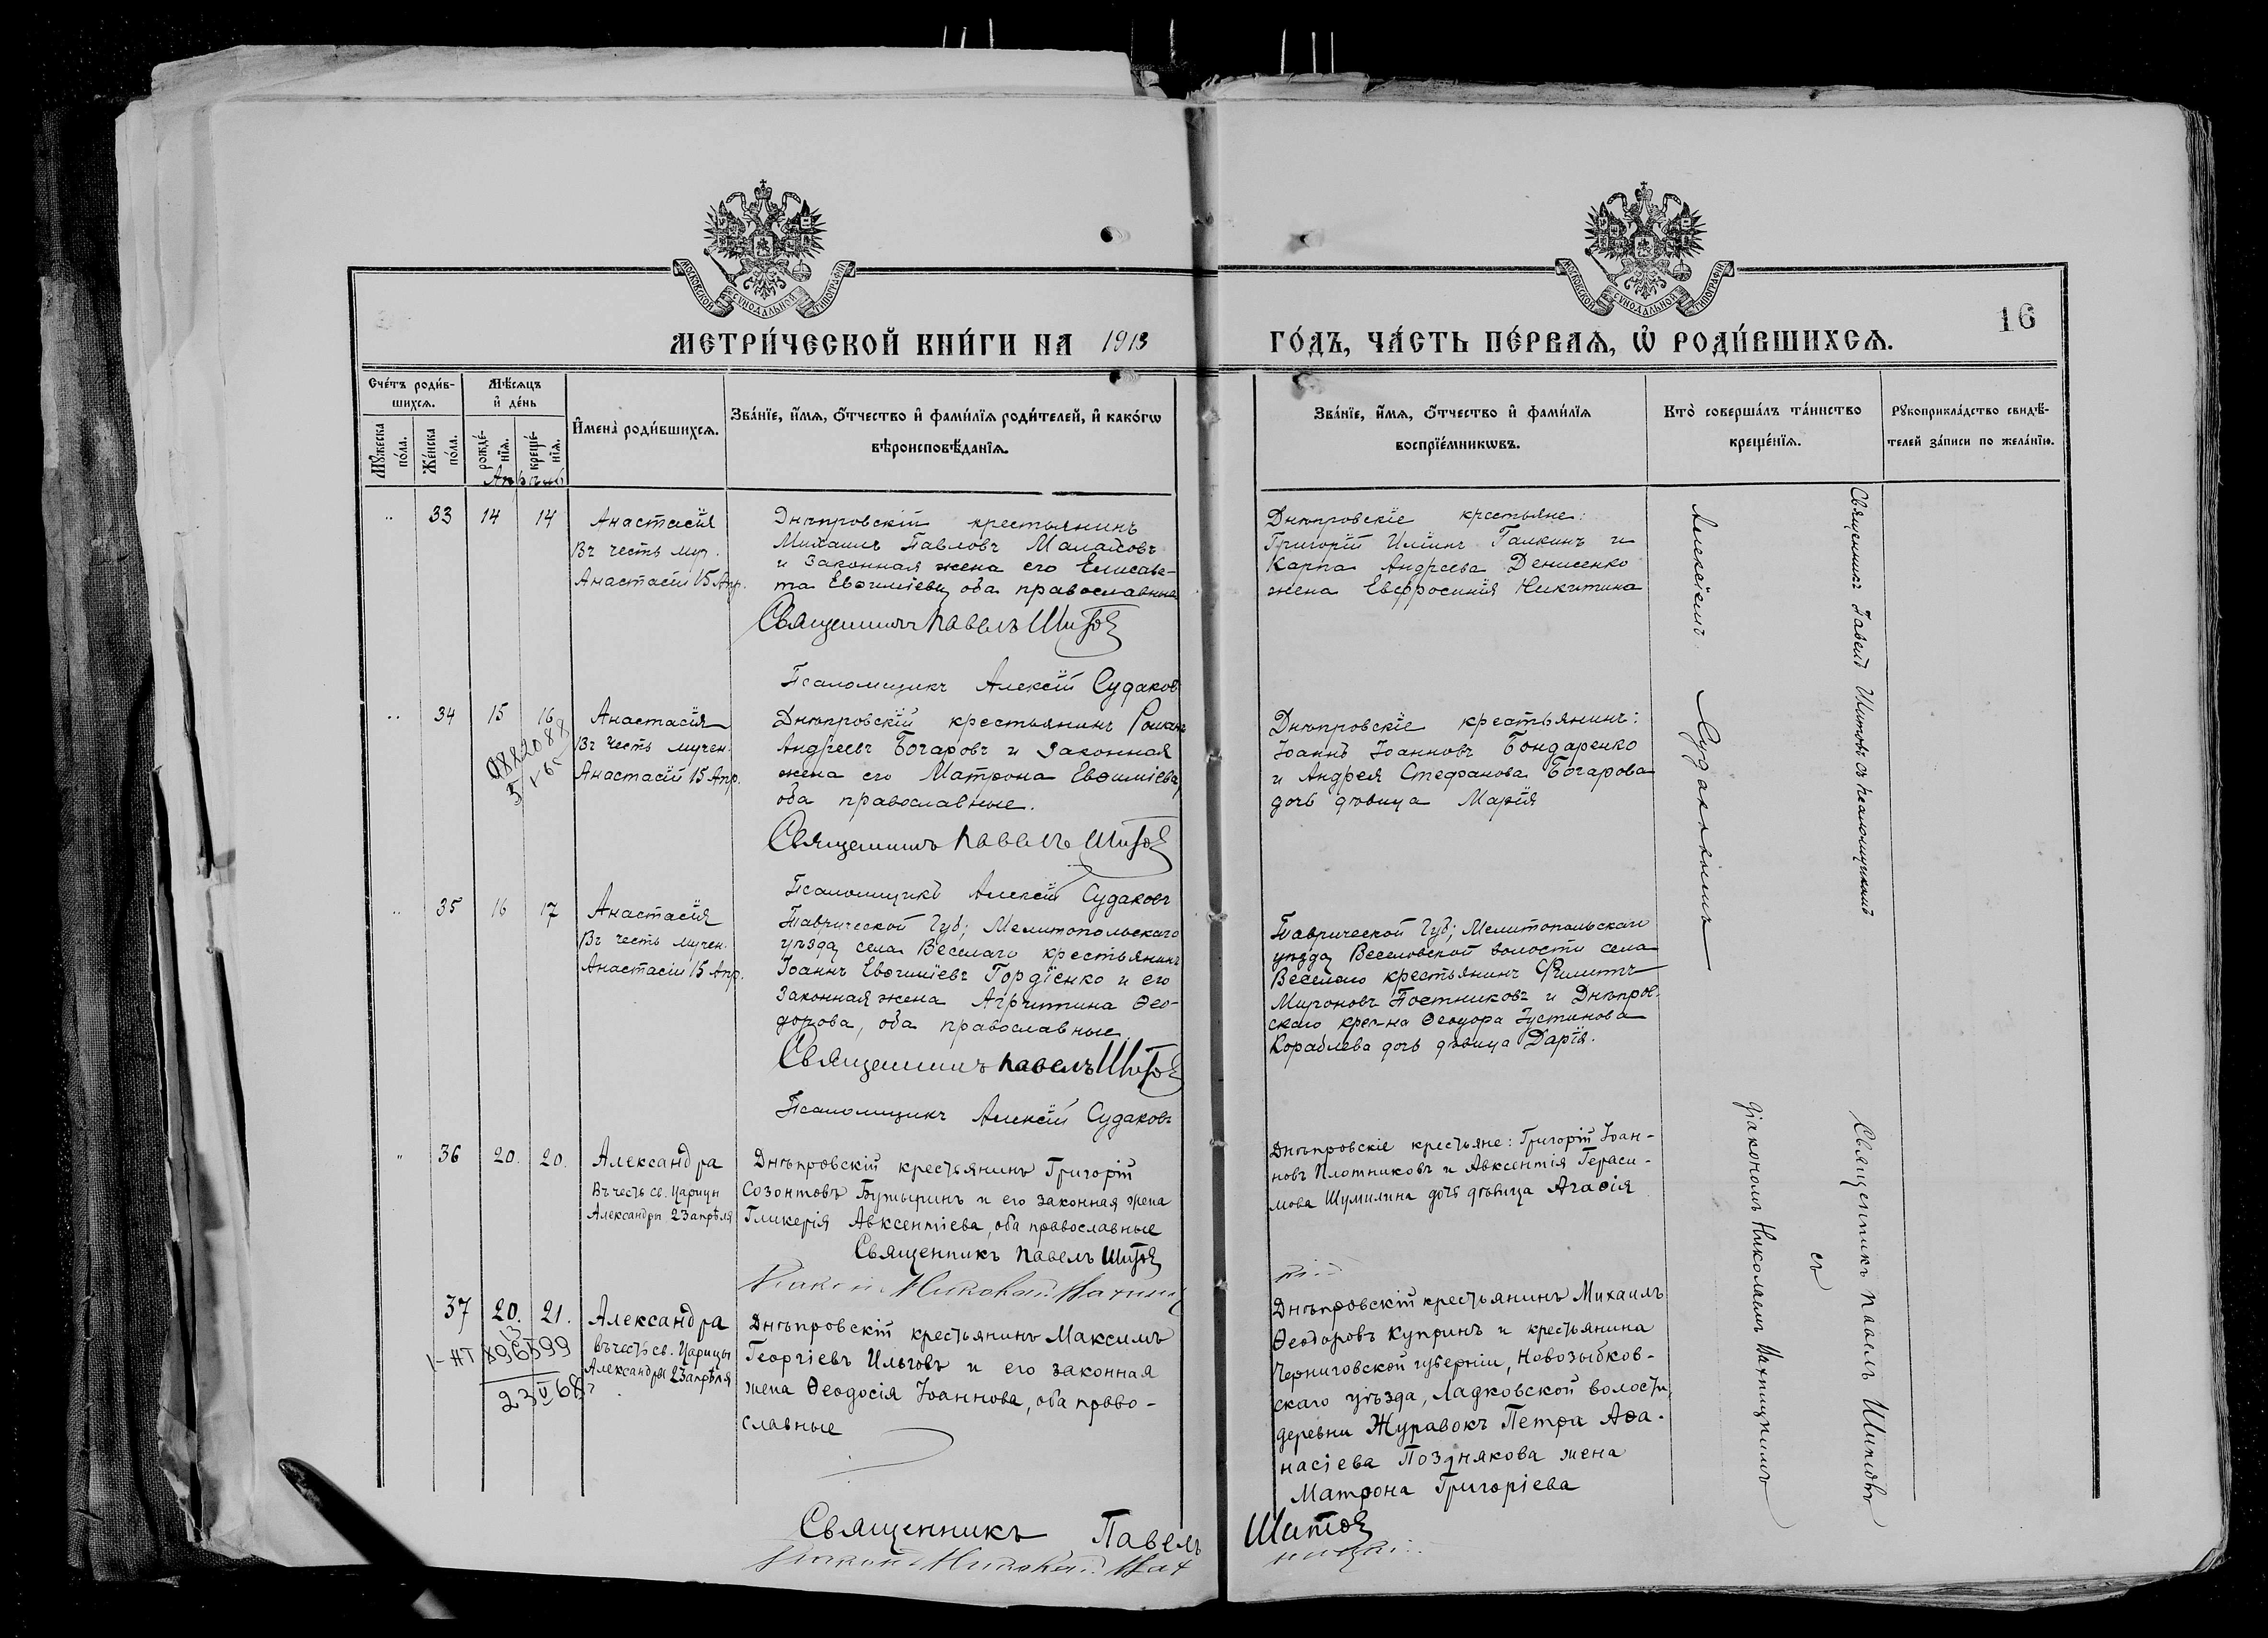 МОСКОВСКОЙ СУНОДАЛЬНОЙ ТИПОГРАФІИ
МОСКОВСКОЙ СУНОДАЛЬНОЙ ТИПОГРАФІИ
16
МЕТРИ́ЧЕСКОЙ КНИ́ГИ НА 1913 ГО́ДЪ, ЧА́СТЬ ПЕ́РВАѦ, Ѡ҆ РОДИ́ВШИХСѦ.
Сче́тъ роди́в-
шихсѧ.
Мꙋжеска
по́ла.
Же́нска
по́ла.
Мѣ́сѧцъ
и҆ де́нь
рожде́-
нїѧ.
креще́-
нїѧ.
Апрѣль
И҆мена̀ роди́вшихсѧ.
Зва́нїе, и҆́мѧ, ѻ҆́тчество и҆ фами́лїѧ роди́телей, и҆ како́гѡ
вѣроисповѣ́данїѧ.
Зва́нїе, и҆́мѧ, ѻ҆́тчество и҆ фами́лїѧ
воспрїе́мникѡвъ.
Кто̀ соверша́лъ та́инство
креще́нїѧ.
Рꙋкоприкла́дство свидѣ́-
телей за́писи по жела́нїю.
33 14 14
Анастасія
Въ честь муч.
Анастасіи 15 Апр.
Днѣпровскій крестьянинъ
Михаилъ Павловъ
и законная жена его Елисаве-
та Евѳиміева, оба православные
Священникъ Павелъ Шитовъ
Псаломщикъ Алексій Судаковъ
Днѣпровскіе крестьяне:
Григорій Иліинъ Галкинъ и
Карпа Андреева Денисенко
жена Евфросинія Никитина
34 15 16
Анастасія
Въ честь мучен.
Анастасіи 15 Апр.
Днѣпровскій крестьянинъ Романъ
Андреевъ Бочаровъ и законная
жена его Матрона Евѳиміева,
оба православные.
Священникъ Павелъ Шитовъ
Псаломщикъ Алексій Судаковъ
Днѣпровскіе крестьянинъ:
Іоаннъ Іоанновъ Бондаренко
и Андрея Стефанова Бочарова
дочь дѣвица Марія
35 16 17
Анастасія
Въ честь мучен.
Анастасіи 15 Апр.
Таврической Губ; Мелитопольскаго
уѣзда, села Веселаго крестьянинъ
Іоаннъ Евѳиміевъ Гордіенко и его
законная жена Агриппина Ѳео-
дорова, оба православные
Священникъ Павелъ Шитовъ
Псаломщикъ Алексій Судаковъ
Таврической Губ; Мелитопольскаго
уѣзда, Веселовской волости села
Веселаго крестьянинъ Филиппъ
Мироновъ Постниковъ и Днѣпров-
скаго кр-на Ѳеодора Іустинова
Кораблева дочь дѣвица Дарія.
Священникъ Павелъ Шитовъ съ псаломщикомъ
Алексіемъ Судаковымъ
36 20. 20.
Александра
Въ честь св. Царицы
Александры 23 апрѣля
Днѣпровскій крестьянинъ Григорій
Созонтовъ Бутыринъ и его законная жена
Гликерія Авксентіева, оба православные
Священникъ Павелъ Шитовъ
Николай
Днѣпровскіе крестьяне: Григорій Іоан-
новъ Плотниковъ и Авксентія Гераси-
мова Шумилина дочь дѣвица Агаѳія
37 20. 21.
Александра
въ честь св. Царицы
Александры 23 апрѣля
Днѣпровскій крестьянинъ Максимъ
Георгіевъ Ильговъ и его законная
жена Ѳеодосія Іоаннова, оба право-
славные
Днѣпровскій крестьянинъ Михаилъ
Ѳеодоровъ Купринъ и крестьянина
Черниговской губерніи, Новозыбков-
скаго уѣзда, Ладковской волости,
деревни Журавокъ Петра Аѳа-
насіева Позднякова жена
Матрона Григоріева
Священникъ Павелъ Шитовъ
съ
діакономъ Николаемъ
Священникъ Павелъ Шитовъ
Николай